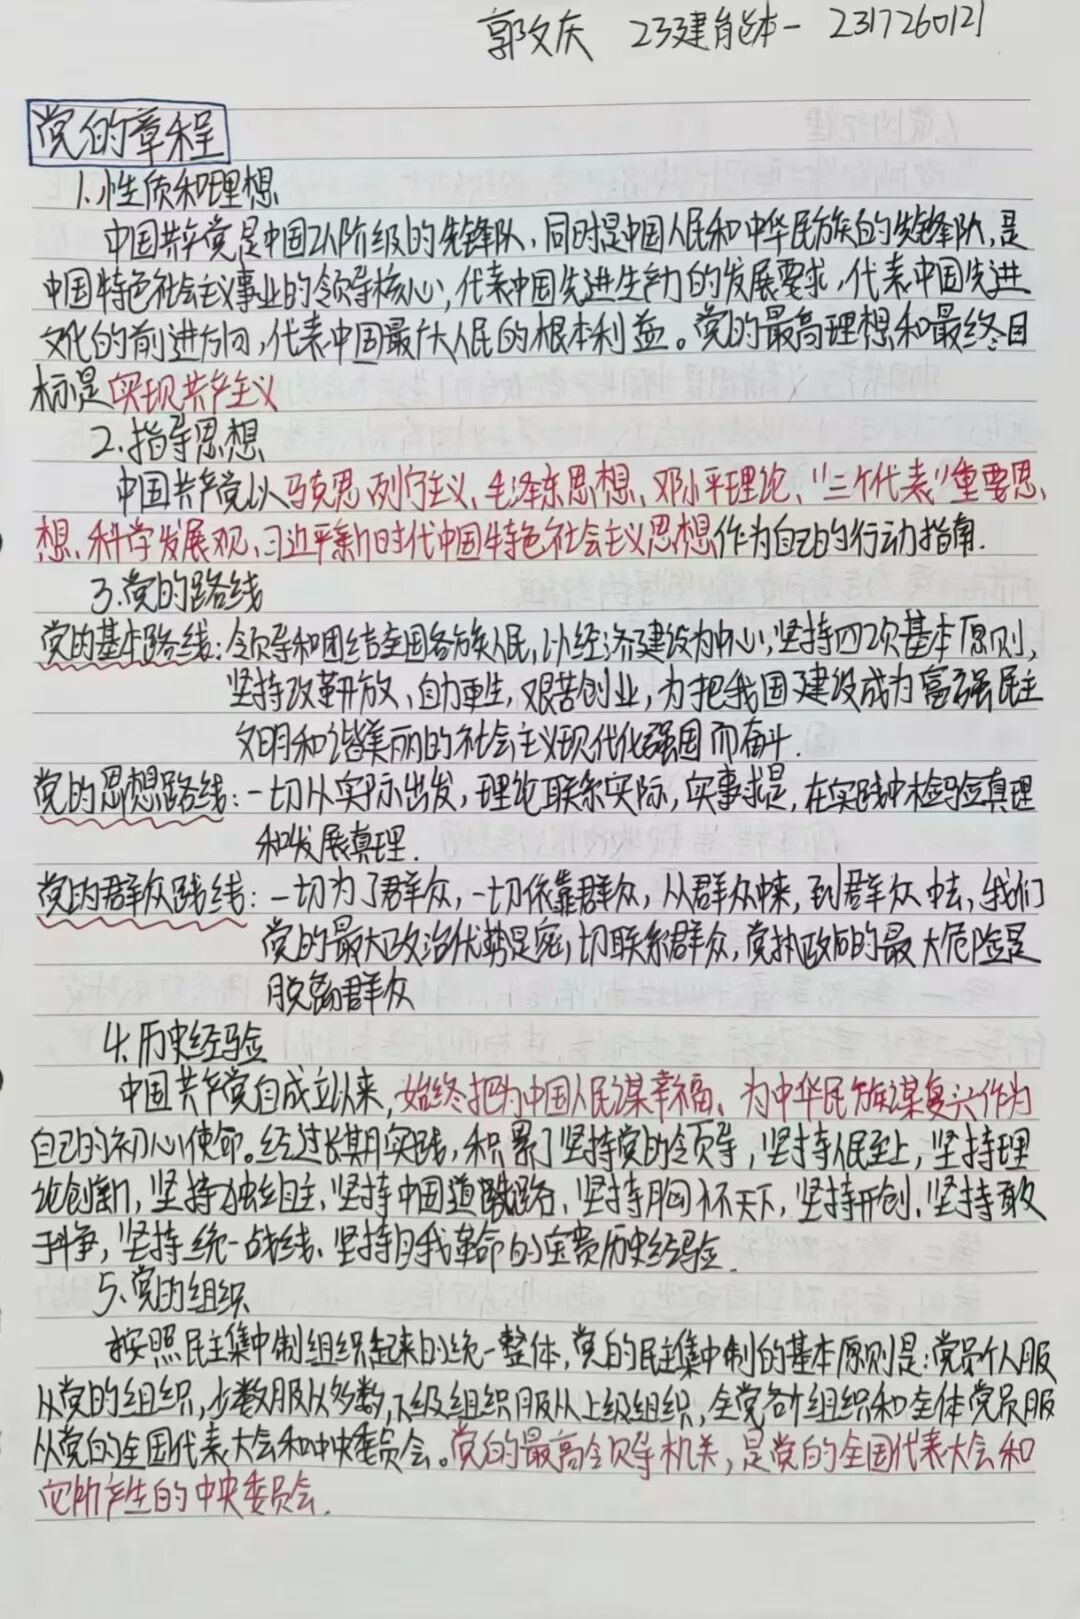 郭文庆 23建能本一 2317260121
党的章程
1.性质和理想
中国共产党是中国工人阶级的先锋队,同时是中国人民和中华民族的先锋队,是
中国特色社会主义事业的领导核心,代表中国先进生产力的发展要求,代表中国先进
文化的前进方向,代表中国最广大人民的根本利益。党的最高理想和最终目
标是实现共产主义
2.指导思想
中国共产党以马克思列宁主义、毛泽东思想、邓小平理论、“三个代表”重要思
想、科学发展观、习近平新时代中国特色社会主义思想作为自己的行动指南.
3.党的路线
党的基本路线:领导和团结全国各族人民,以经济建设为中心,坚持四项基本原则,
坚持改革开放、自力更生,艰苦创业,为把我国建设成为富强民主
文明和谐美丽的社会主义现代化强国而奋斗.
党的思想路线:一切从实际出发,理论联系实际,实事求是,在实践中检验真理
和发展真理.
党的群众路线:一切为了群众,一切依靠群众,从群众中来,到群众中去,我们
党的最大政治优势是密切联系群众,党执政后的最大危险是
脱离群众
4.历史经验
中国共产党自成立以来,始终把为中国人民谋幸福、为中华民族谋复兴作为
自己的初心使命。经过长期实践,积累了坚持党的领导,坚持人民至上,坚持理
论创新,坚持独立自主,坚持中国道路、坚持胸怀天下,坚持开创、坚持敢
于斗争,坚持统一战线、坚持自我革命的宝贵历史经验.
5.党的组织
按照民主集中制组织起来的统一整体,党的民主集中制的基本原则是:党员个人服
从党的组织,少数服从多数,下级组织服从上级组织,全党各个组织和全体党员服
从党的全国代表大会和中央委员会。党的最高领导机关,是党的全国代表大会和
它所产生的中央委员会.